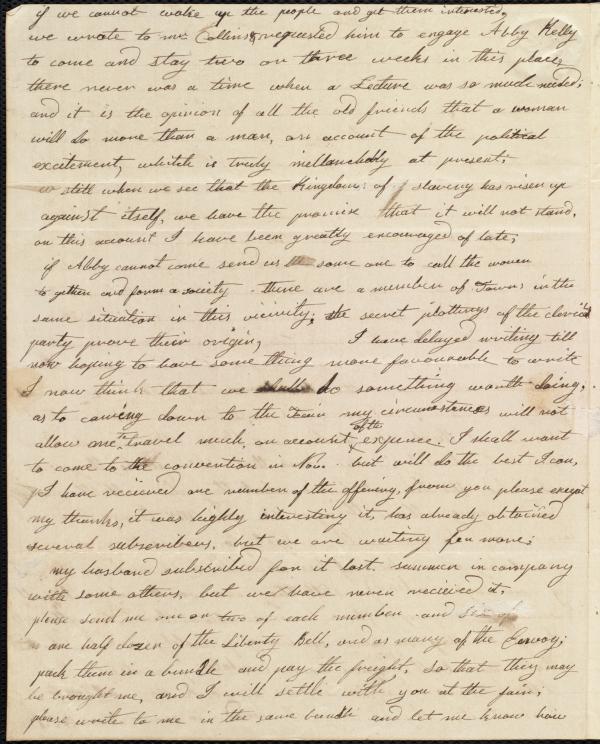 if we cannot wake up the people and get them interested,
we wrote to mr Collins & requested him to engage Abby Kelly
to come and stay two or three weeks in this place,
there never was a time when a Lecture was so much needed;
and it is the opinion of all the old friends that a woman
will do more than a man, on account of the political
excitement, whitch is truly mellancholly at present;
still when we see that the Kingdom of slavery has risen up
against itself, we have the promise that it will not stand,
on this account I have been greatly encouraged of late;
if Abby cannot come send us some one to call the women
to gether and form a society - there are a number of Towns in the
same situation in this vicinity; the secret plottings of the clerical
party prove their origin, I have delayed writing till
now hoping to have some thing more favourable to write
I now think that we shall do something worth doing,
as to comeing down to the Fair my circumstances will not
allow me to travel much, on account of the expence. I shall want
to come to the convention in Nov. but will do the best I can,
I have recieved one number of the offering, from you please except
my thanks, it was highly interesting it, has already obtained
several subscribers, but we are waiting for more;
my husband subscribed for it last summer in company
with some others, but we have never recieved it,
please send me one or two of each number and
one half dozen of the Liberty Bell, and as many of the Envoy;
pack them in a bundle and pay the freight, so that they may
be brought me, and I will settle with you at the fair;
please write to me in the same bundle and let me know how